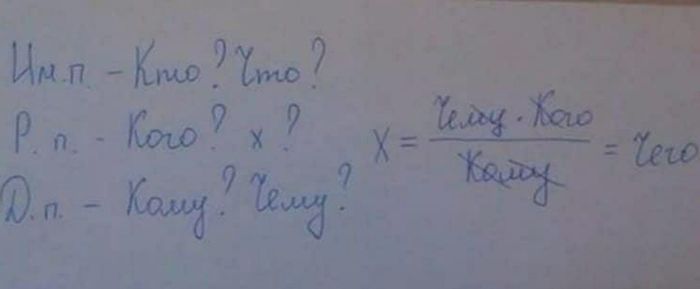 Им.п. - Кто? Что?
Р. п. - Кого? х ?
Д.п. - Кому? Чему?
Х = Чему · Кого / Кому = Чего